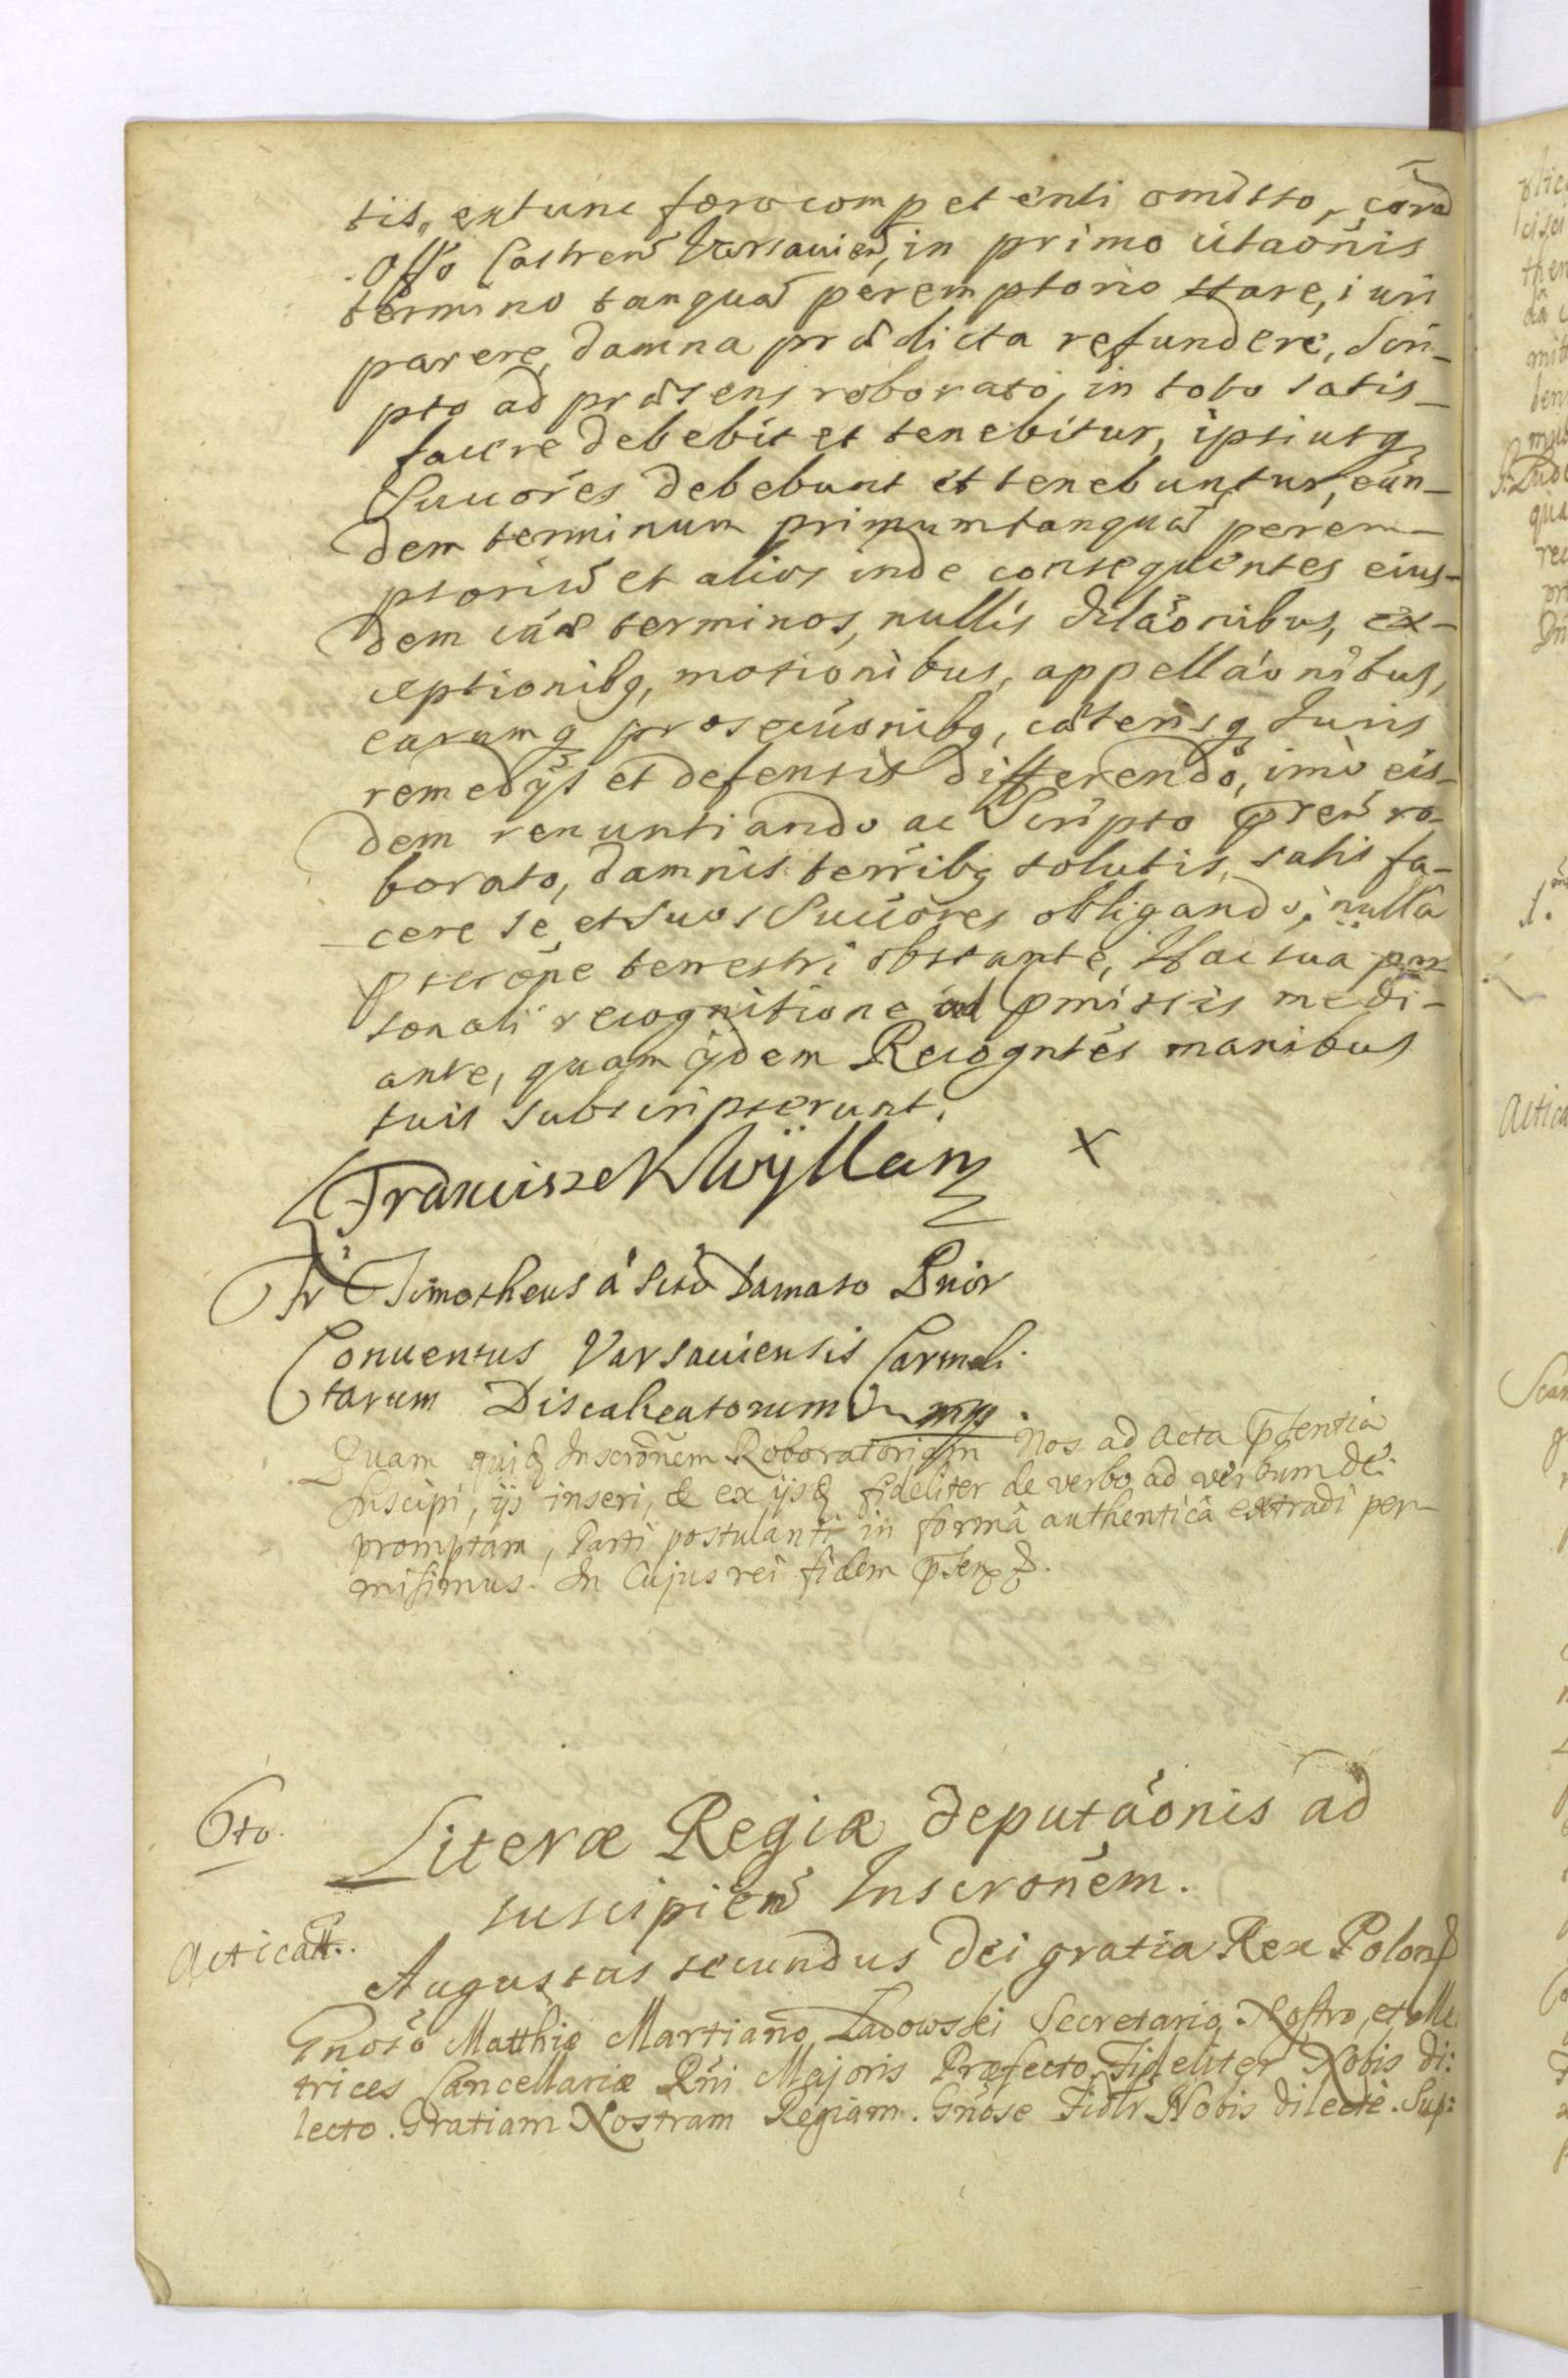 tis, extunc foro competenti omisso, corã
Offo Castren̄ Varsavien̄, in primo citaõnis
termino tanquã peremptorio stare, iuri
parere, damna prædicta refundere, Scri-
pto ad præsens roborato, in toto satis-
facere debebit et tenebitur, ipsiusq
Succores debebunt et tenebuntur, eun-
dem terminum primum tanquã perem-
ptoriũ et alios inde consequentes eius-
dem cãæ terminos, nullis dilaõnibus, ex-
ceptionibq, motionibus, appellaõnibus,
earumq prosecuõnibq, cæterisq Juris
remedijs et defensis differendo, imò eis-
dem renuntiando ac Scripto præn̄ ro-
borato, damnis terribq solutis, satis fa-
cere se et suos Succores obligando, nullâ
pscrõne terrestri obstante, Hac sua per-
sonali recognitione ad pmissis medi-
ante, quam qdem Recogntes manibus
suis subscripserunt.
Franciszek Wÿllan X
Fr Timotheus á Scto Damaso Prior
Conventus Varsaviensis Carmeli
tarum Discalceatorum mp.
Quam quid Inscrõnem Roboratoriam Nos ad Acta psentia
Suscipi, ijs inseri, & ex ijsd fideliter de verbo ad verbum de:
promptam, Parti postulanti in formâ authenticâ extradi per-
misimus. In Cujus rei fidem
6to.
Literæ Regiæ deputaõnis ad
suscipien̄ Inscronem.
Acticatt.
Augustus secundus dei gratia Rex Polon
Gnoso Matthiæ Martiano Ladowski Secretario Nostro, et Me
trices Cancellariæ Rni Majoris Præfecto, Fideliter Nobis di:
lecto. Gratiam Nostram Regiam. Gnose Fidlr Nobis dilecte. Sup: